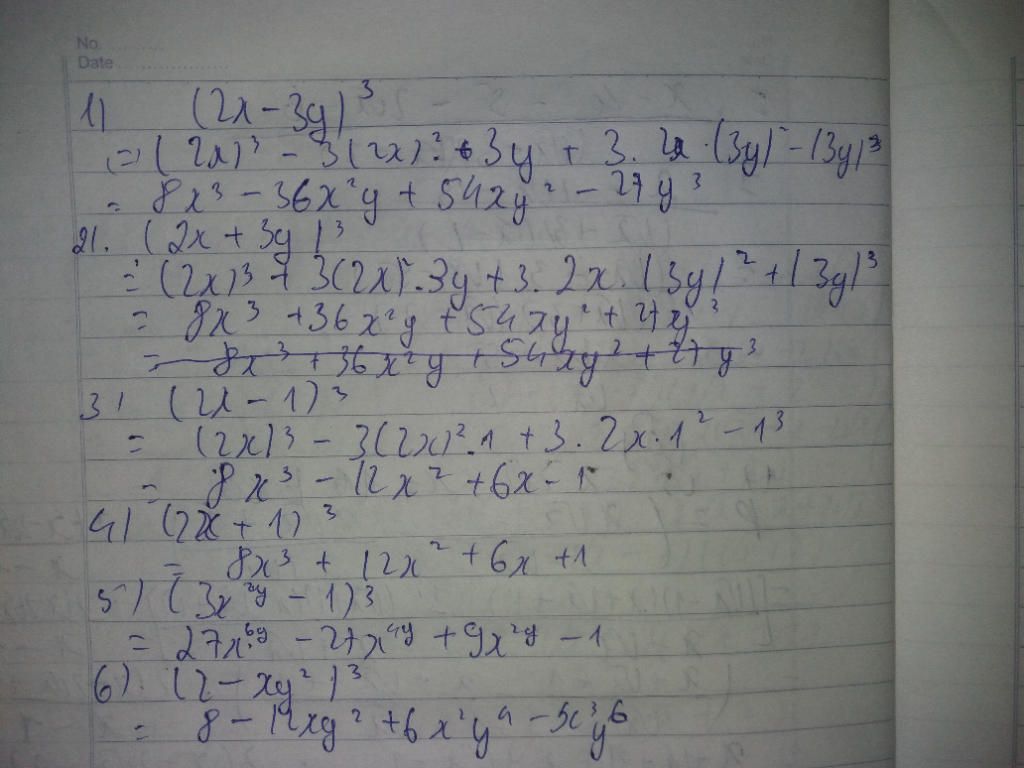 No. ............
Date ....................
1) (2x - 3y)³
= (2x)³ - 3(2x)² . 3y + 3. 2x . (3y)² - (3y)³
= 8x³ - 36x²y + 54xy² - 27y³
2). (2x + 3y)³
= (2x)³ + 3(2x)² . 3y + 3. 2x. (3y)² + (3y)³
= 8x³ + 36x²y + 54xy² + 27y³
= 8x³ + 36x²y + 54xy² + 27y³
3) (2x - 1)³
= (2x)³ - 3(2x)² . 1 + 3. 2x . 1² - 1³
= 8x³ - 12x² + 6x - 1
4) (2x + 1)³
= 8x³ + 12x² + 6x + 1
5) (3x²ʸ - 1)³
= 27x⁶ʸ - 27x⁴ʸ + 9x²ʸ - 1
6) (2 - xy²)³
= 8 - 12xy² + 6x²y⁴ - x³y⁶